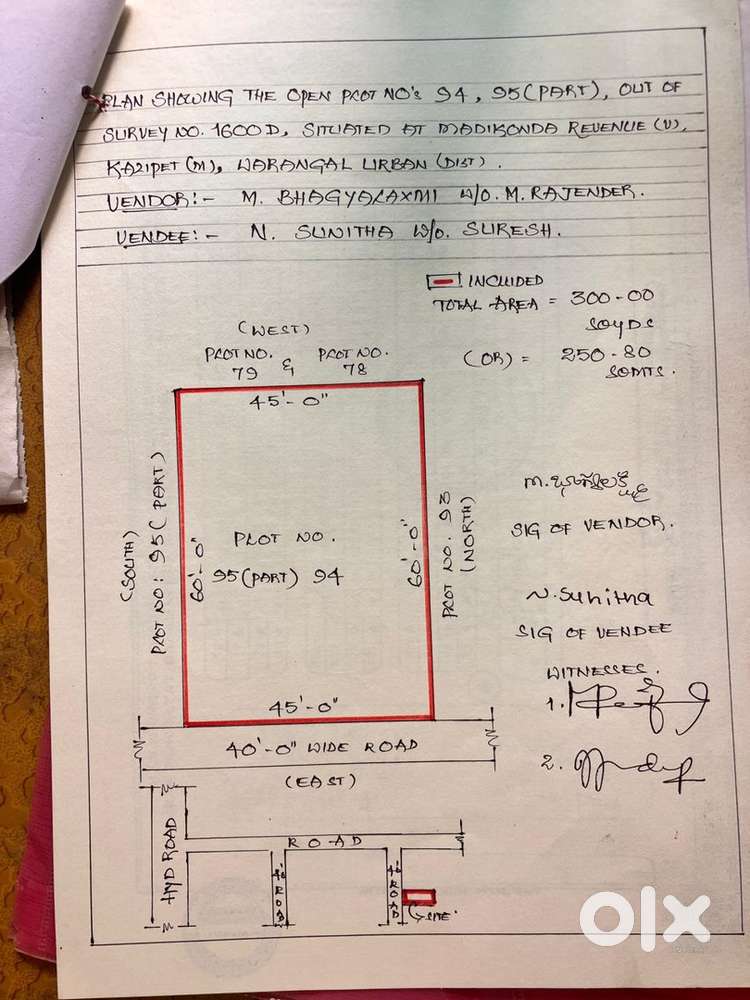 PLAN SHOWING THE OPEN PLOT NO's 94, 95(PART), OUT OF
SURVEY NO. 1600D, SITUATED AT MADIKONDA REVENUE (V),
KAZIPET (M), WARANGAL URBAN (DIST).
VENDOR:- M. BHAGYALAXMI W/O. M. RAJENDER.
VENDEE:- N. SUNITHA W/o. SURESH.
INCLUDED
TOTAL AREA = 300-00
SQYDS
(OR) = 250-80
SQMTS.
(WEST)
PLOT NO. 79 & PLOT NO. 78
45'-0"
(SOUTH)
PLOT NO: 95(PART)
60'-0"
PLOT NO.
95(PART) 94
60'-0"
PLOT NO. 93
(NORTH)
45'-0"
40'-0" WIDE ROAD
(EAST)
SIG OF VENDOR.
N. Sunitha
SIG OF VENDEE
WITNESSES.
1.
2.
HYD ROAD
ROAD
40' ROAD
40' ROAD
SITE.
olx